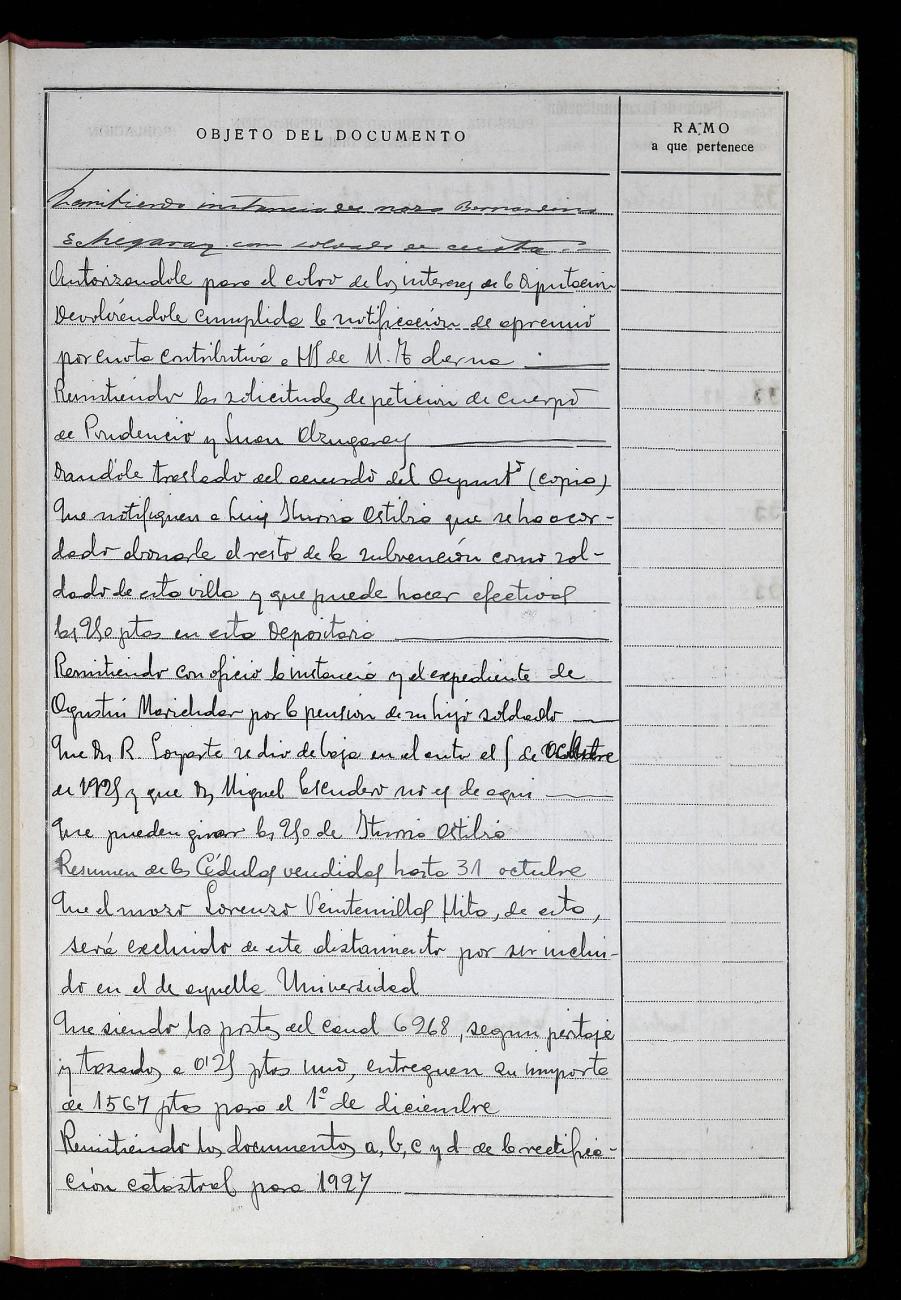 OBJETO DEL DOCUMENTO
RAMO
a que pertenece
Remitiendo instancia del mozo Bernardino
Echegaray con
Autorizandole para el cobro de los intereses de la Diputación
Devolviéndole cumplida la notificación de apremio
por cuota contributiva a Hs de M.
Remitiendo las solicitudes de petición de cuerpo
de Prudencio y Juan Azugaray
Dandole traslado del acuerdo del Ayuntº (copia)
Que notifiquen a Luis Iturria Astibia que se ha acor-
dado abonarle el resto de la subvención como sol-
dado de esta villa y que puede hacer efectivas
las 250 ptas en esta Depositaria
Remitiendo con oficio la instancia y el expediente de
Agustin Marichalar por la pension de su hijo soldado
Que Dn R. Loyarte se dio de baja en el auto el 5 de octubre
de 1925 y que Dn Miguel Escudero no es de aqui
Que pueden girar las 250 de Iturria Astibia
Resumen de las Cédulas vendidas hasta 31 octubre
Que el mozo Lorenzo Veintemillas Hita, de esta,
será excluido de este alistamiento por ser inclui-
do en el de aquella Universidad
Que siendo los postes del canal 6268, segun peritaje
y tasados a 0'25 ptas uno, entreguen su importe
de 1567 ptas para el 1º de diciembre
Remitiendo los documentos a, b, c y d de la rectifica-
ción catastral para 1927